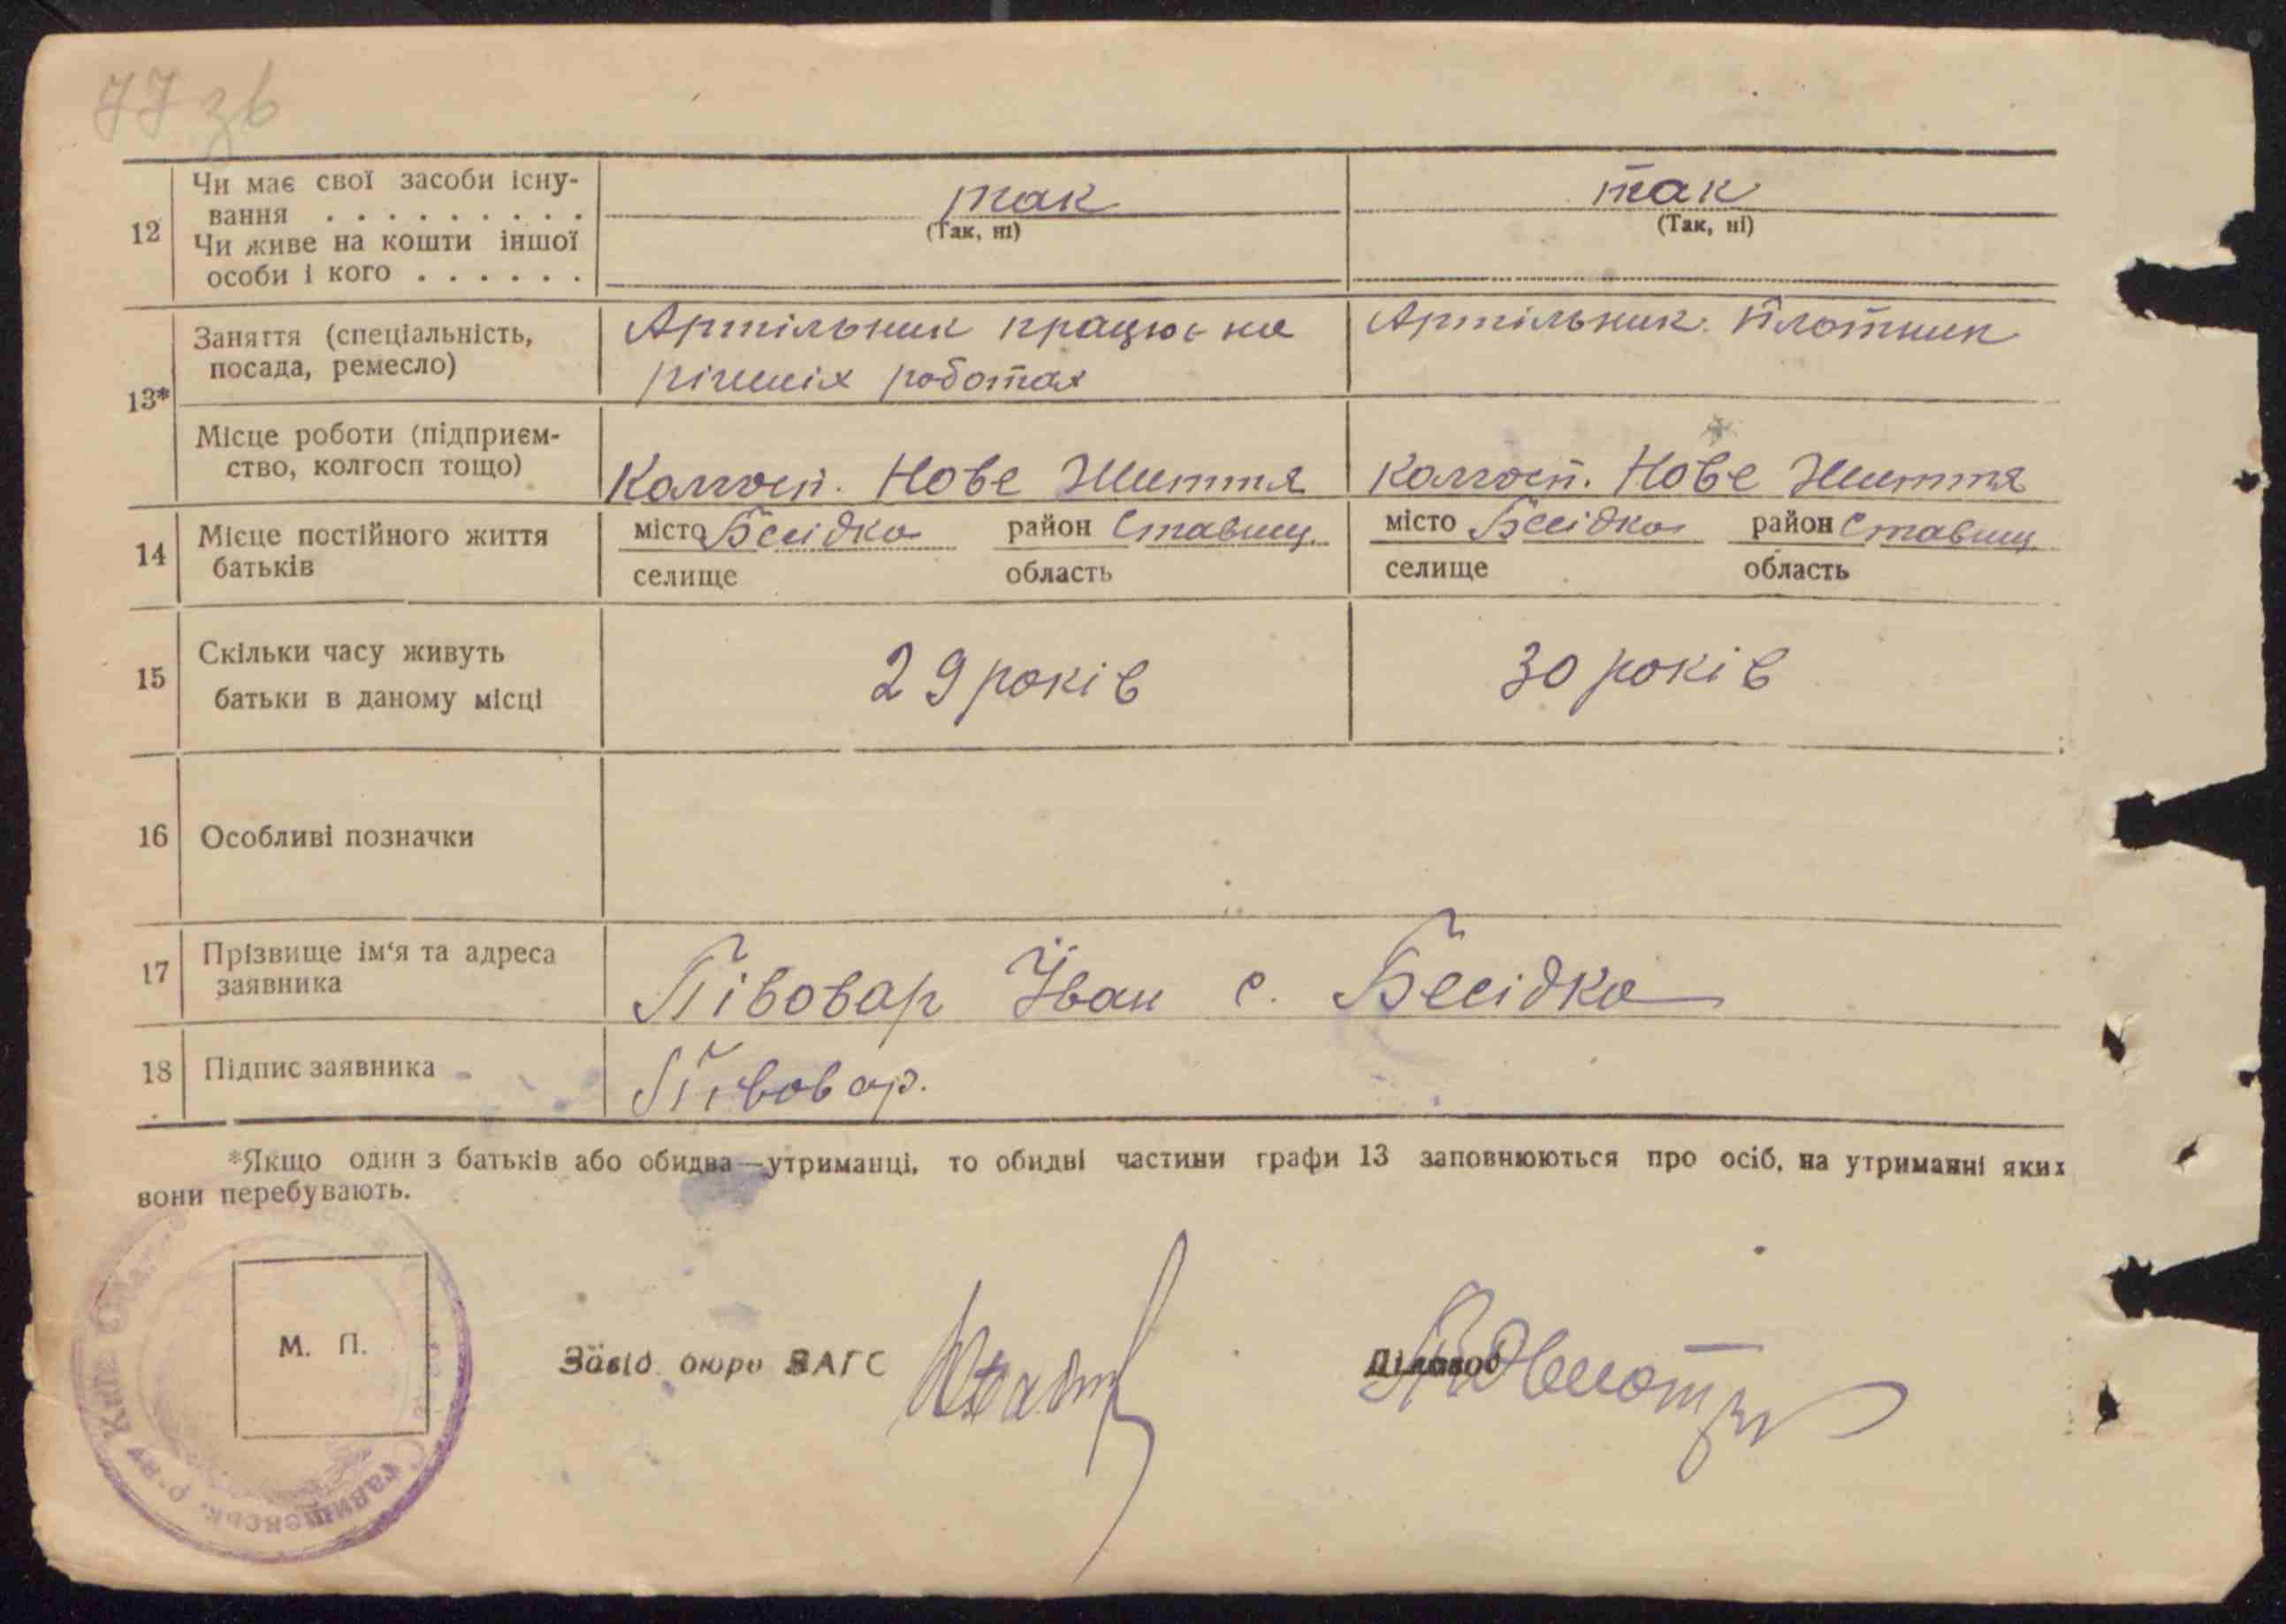 77 зв
12 Чи має свої засоби існу-
вання . . . . . . . . . так так
Чи живе на кошти іншої (Так, ні) (Так, ні)
особи і кого . . . . . .
13* Заняття (спеціальність, Артільник працює на Артільник. Плотник
посада, ремесло) різних роботах
Місце роботи (підприєм-
ство, колгосп тощо) Колгосп. Нове Життя Колгосп. Нове Життя
14 Місце постійного життя місто Бесідка район Ставищ. місто Бесідка район Ставищ
батьків селище область селище область
15 Скільки часу живуть
батьки в даному місці 29 років 30 років
16 Особливі позначки
17 Прізвище ім‘я та адреса
заявника Півовар Іван с. Бесідка
18 Підпис заявника Півовар.
*Якщо один з батьків або обидва—утриманці, то обидві частини графи 13 заповнюються про осіб, на утриманні яких
вони перебувають.
М. П.
Завід. бюро ЗАГС
Діловод
Ставищевськ. р-ну Київ